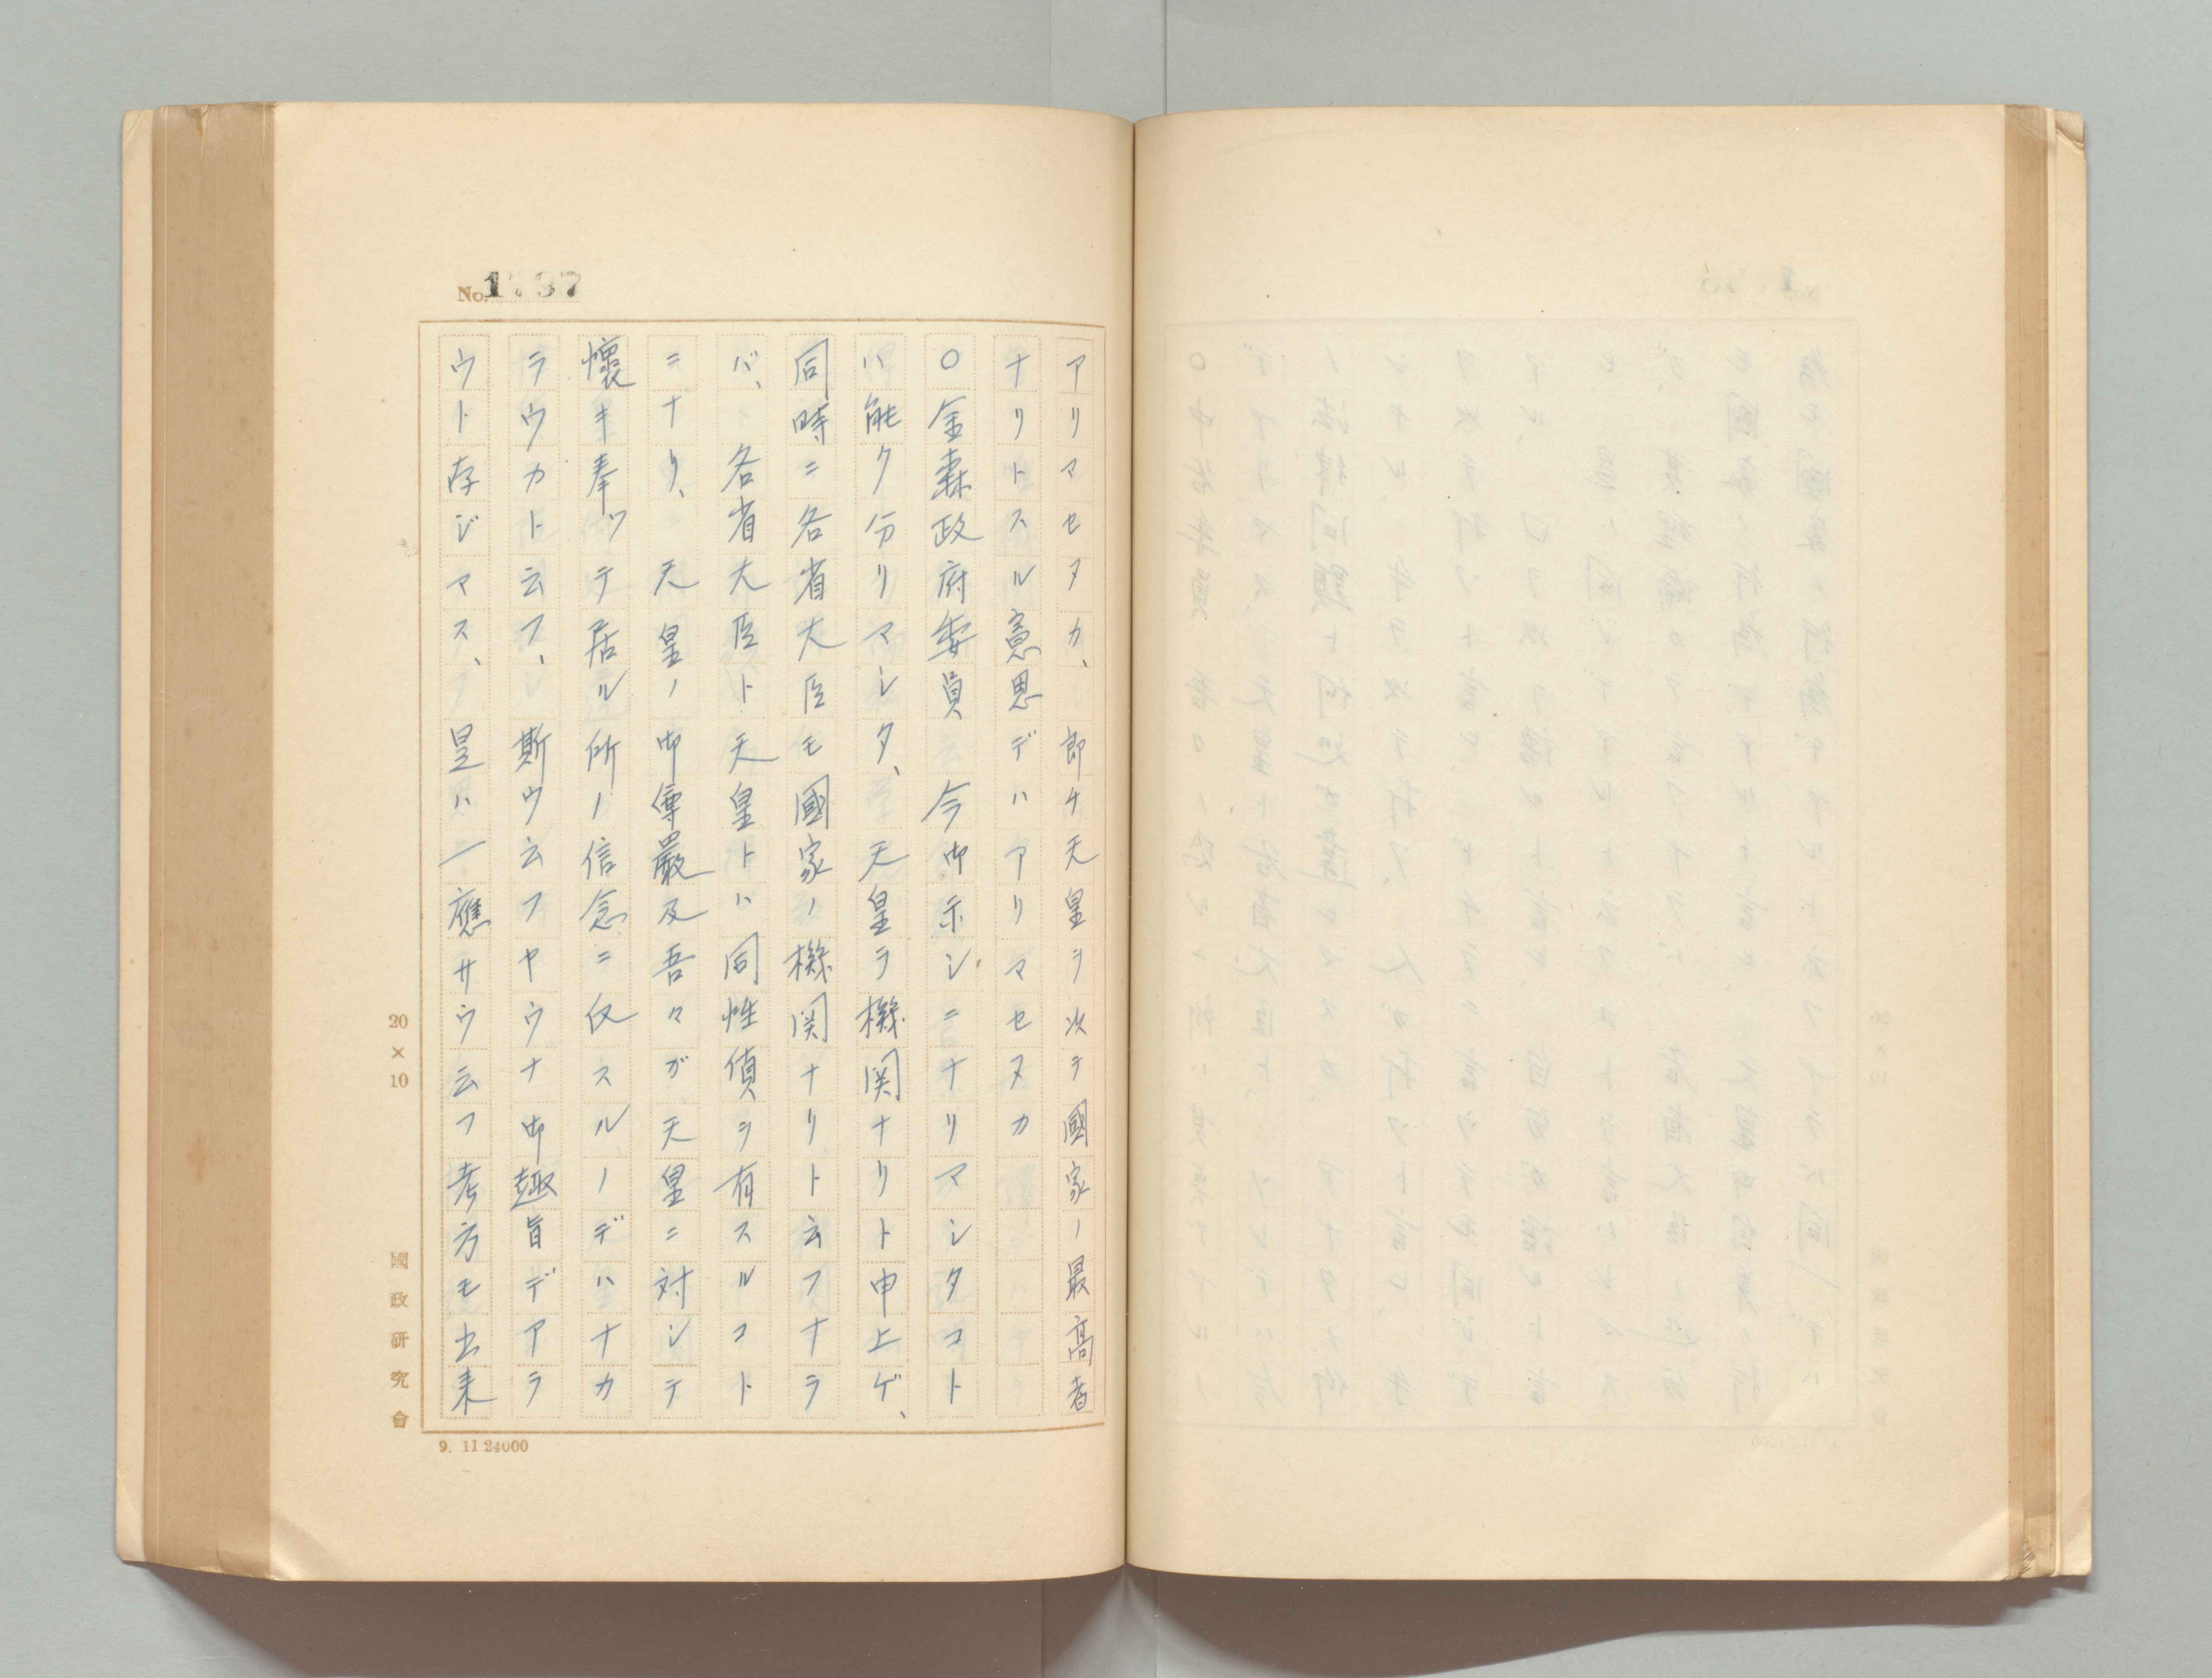 No.1737
アリマセヌカ、即チ天皇ヲ次テ國家ノ最高者
ナリトスル意思デハアリマセヌカ
〇金森政府委員 今御示シニナリマシタコト
ハ能ク分リマシタ、天皇ヲ機関ナリト申上ゲ、
同時ニ各省大臣モ國家ノ機関ナリト云フナラ
バ、各省大臣ト天皇トハ同性質ヲ有スルコト
ニナリ、天皇ノ御尊嚴及吾々ガ天皇ニ対シテ
懷キ奉ツテ居ル所ノ信念ニ反スルノデハナカ
ラウカト云フ、斯ウ云フヤウナ御趣旨デアラ
ウト存ジマス、是ハ一應サウ云フ考方モ出来
20×10
國政研究會
9. 11 24000